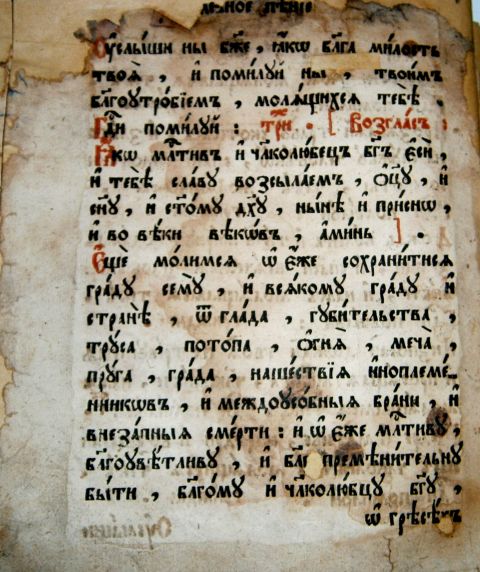 ЛЕБНОЕ ПѢНЇЕ
Оу҆слы́ши ны̀ бж҃е, ꙗ҆́кѡ бл҃га ми́лость
твоѧ̀, и҆ поми́лꙋй ны̀, твои́мъ
бл҃гоꙋтро́бїемъ, молѧ́щихсѧ тебѣ̀.
Гдⷭ҇и поми́лꙋй: три. [Возгласъ:
Ꙗ҆́кѡ млⷭ҇тивъ и҆ чл҃колю́бецъ бг҃ъ є҆сѝ,
и҆ тебѣ̀ сла́вꙋ возсыла́емъ, ѻ҆ц҃ꙋ̀, и҆
сн҃ꙋ, и҆ ст҃о́мꙋ дх҃ꙋ, ны́нѣ и҆ при́снѡ,
и҆ во вѣ́ки вѣкѡ́въ, а҆ми́нь].
Є҆щѐ мо́лимсѧ ѡ҆ є҆́же сохрани́тисѧ
гра́дꙋ семꙋ̀, и҆ всѧ́комꙋ гра́дꙋ и҆
странѣ̀, ѿ гла́да, гꙋби́тельства,
трꙋ́са, пото́па, ѻ҆гнѧ̀, меча̀,
прꙋ́га, гра́да, наше́ствїѧ и҆ноплеме́-
нникѡвъ, и҆ междоꙋсо́бныѧ бра́ни, и҆
внеза́пныѧ сме́рти: и҆ ѡ҆ є҆́же млⷭ҇тивꙋ,
бл҃гоꙋвѣ́тливꙋ, и҆ бл҃гопремѣни́тельнꙋ
бы́ти, бл҃го́мꙋ и҆ чл҃колю́бцꙋ бг҃ꙋ,
ѿ грѣсѣ́хъ